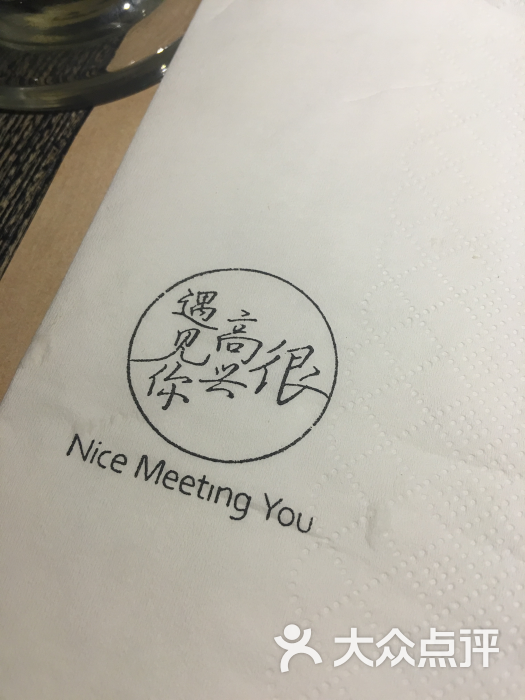 很
高兴
遇见你
Nice Meeting You
大众点评